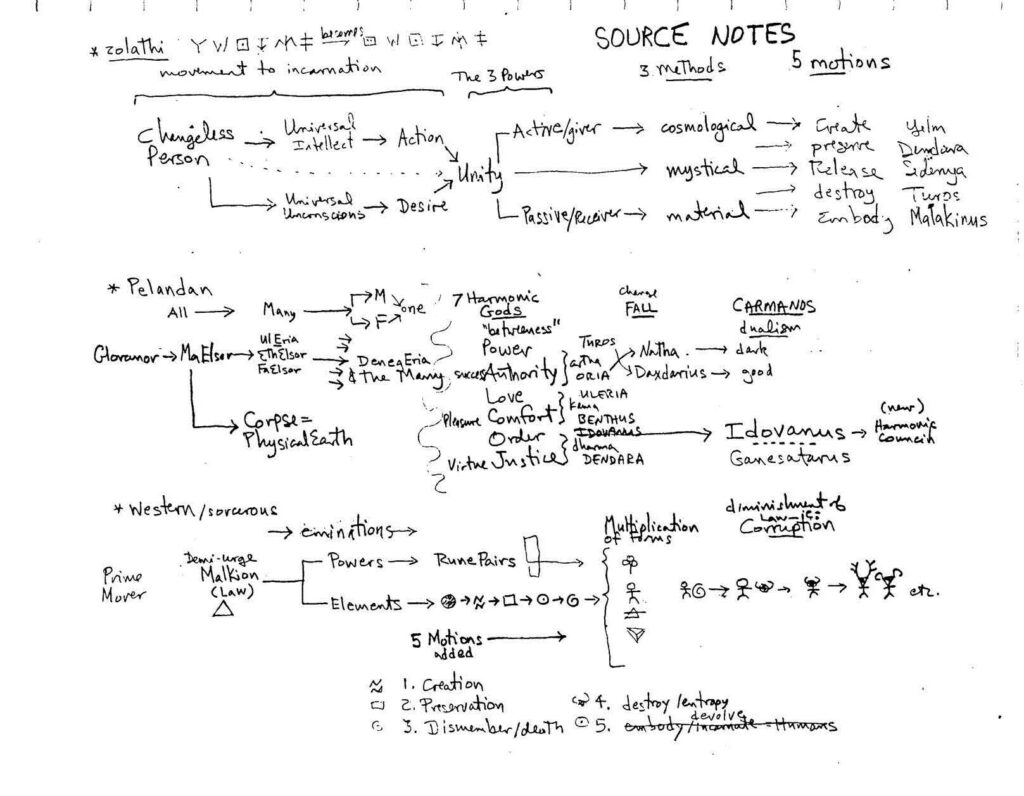 SOURCE NOTES
* zolathi
becomes
movement to incarnation
The 3 Powers
3 methods
5 motions
Changeless Person
Universal Intellect
Action
Universal Unconscious
Desire
Unity
Active/giver
cosmological
Create
Yelm
preserve
Dendara
mystical
Release
Sedenya
destroy
Turos
Passive/Receiver
material
Embody
Malakinus
* Pelandan
All
Many
M
F
one
7 Harmonic Gods
"betweeness"
Change
FALL
CARMANOS
dualism
Gloranor
MaElsor
UlEria
EthElsor
FaElsor
DenegEria
& the Many
Corpse =
Physical Earth
Power
TUROS
succes
Authority
artha
ORIA
Natha
dark
Daxdarius
good
Love
ULERIA
kama
Pleasure
Comfort
BENTHUS
Order
IDOVANUS
dharma
Virtue
Justice
DENDARA
Idovanus
Ganesatarus
(new)
Harmonic
Council
* Western/sorcerous
eminations
Prime Mover
Demi-urge
Malkion
(Law)
Powers
Rune Pairs
Elements
5 Motions
added
Multiplication
of forms
diminishment of
Law-ie:
Corruption
etc.
1. Creation
2. Preservation
3. Dismember/death
4. destroy/entropy
devolve
5. embody/incarnate = Humans